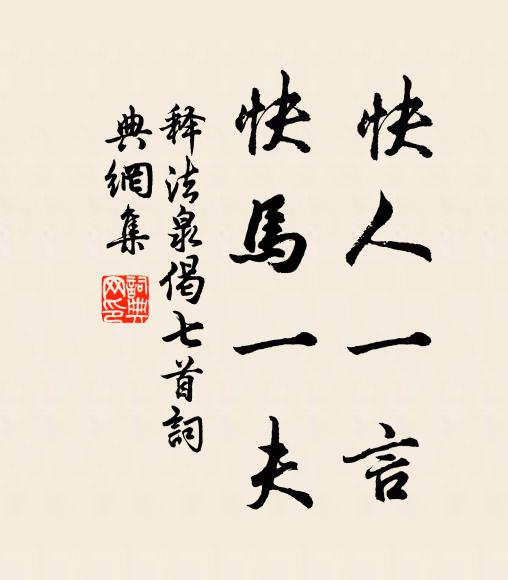 快人一言
快馬一夫
释法泉偈七首詞
典網集
詞典
网印